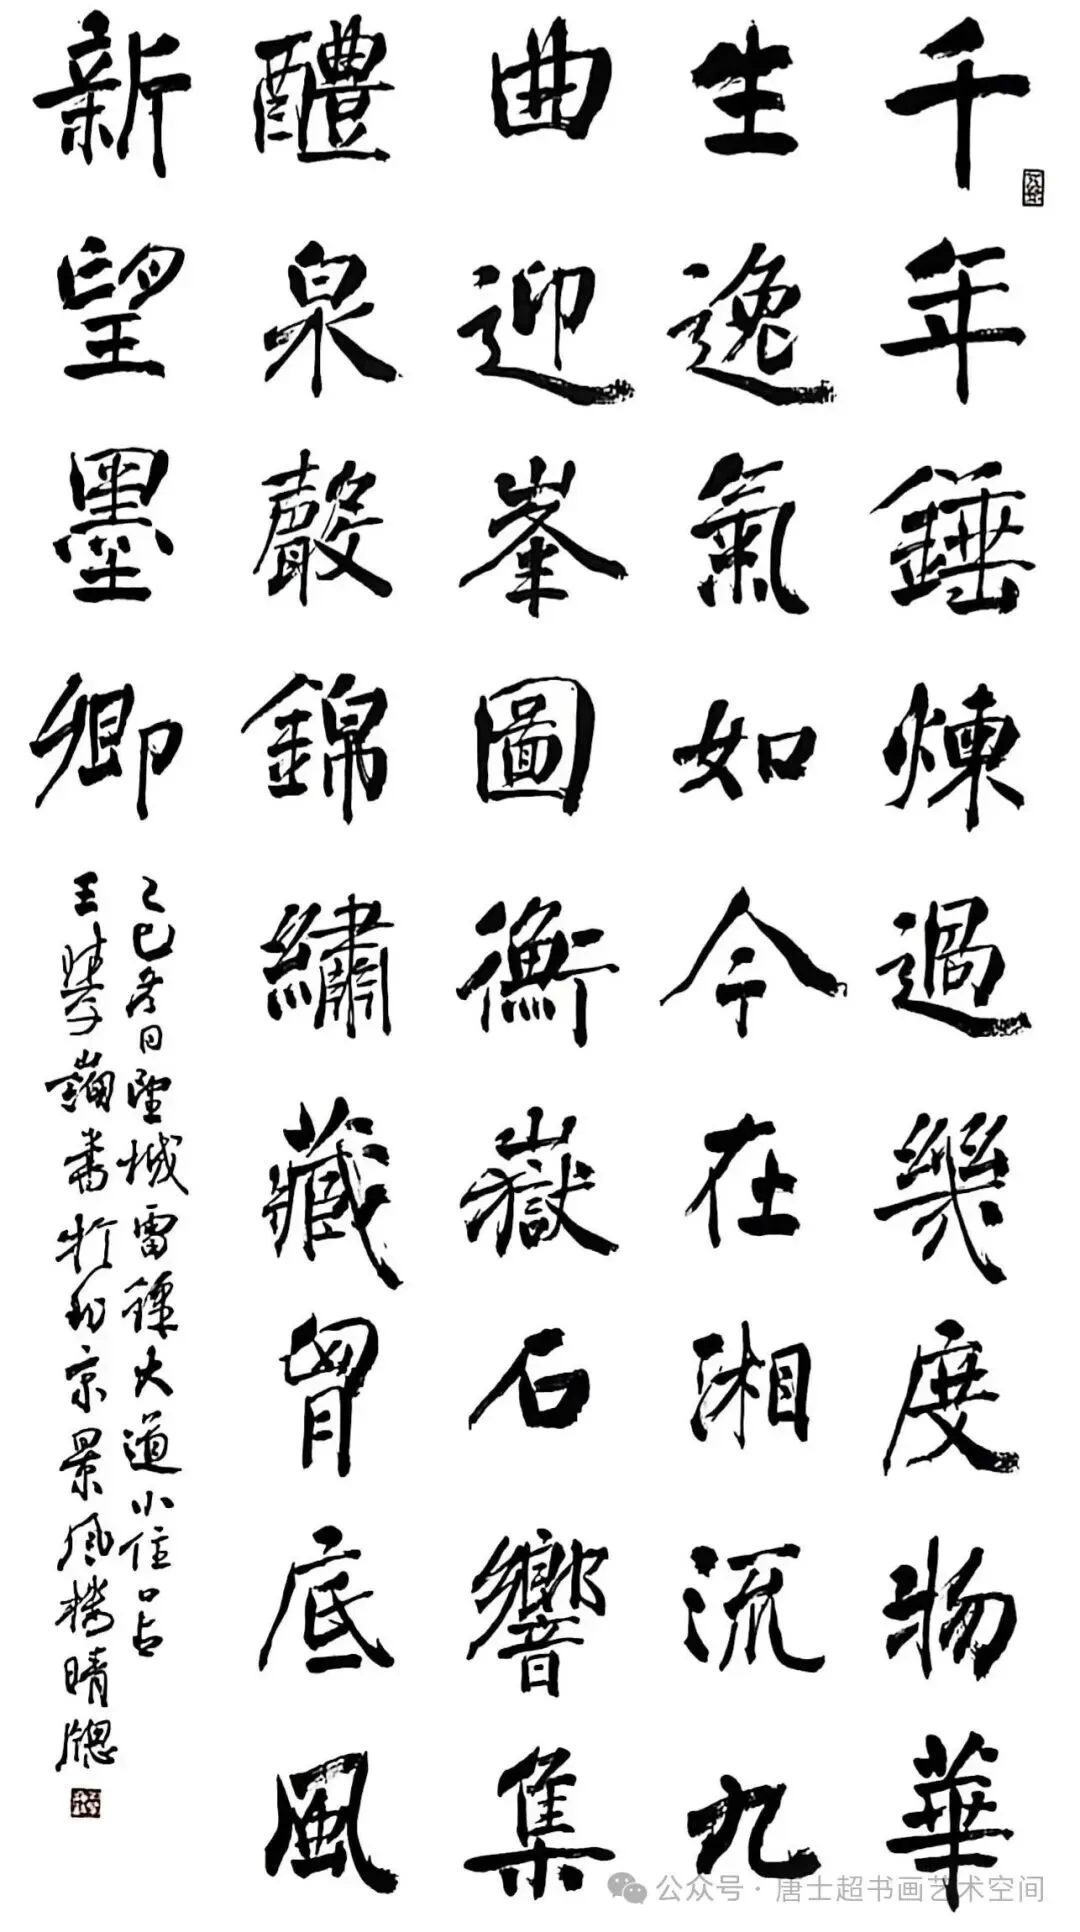 千年錘煉過幾度物華
生逸氣如今在湘流九
曲迎峯圖衡嶽石響集
醴泉聲錦繡藏胷底風
新望墨卿
乙巳冬日望城雷鋒大道小住口占
王書於北京景風樓晴牕
公众号·唐士超书画艺术空间